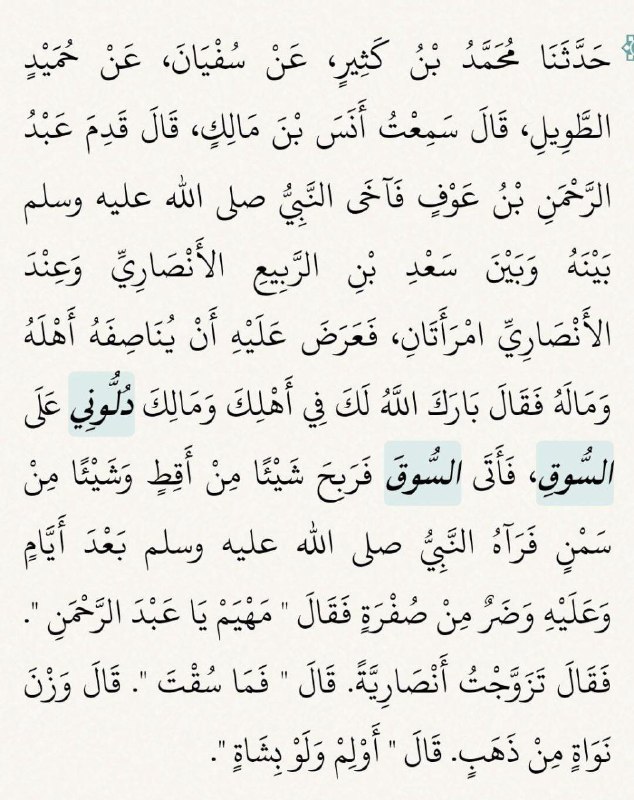 حَدَّثَنَا مُحَمَّدُ بْنُ كَثِيرٍ، عَنْ سُفْيَانَ، عَنْ حُمَيْدٍ
الطَّوِيلِ، قَالَ سَمِعْتُ أَنَسَ بْنَ مَالِكٍ، قَالَ قَدِمَ عَبْدُ
الرَّحْمَنِ بْنُ عَوْفٍ فَآخَى النَّبِيُّ صلى الله عليه وسلم
بَيْنَهُ وَبَيْنَ سَعْدِ بْنِ الرَّبِيعِ الأَنْصَارِيِّ وَعِنْدَ
الأَنْصَارِيِّ امْرَأَتَانِ، فَعَرَضَ عَلَيْهِ أَنْ يُنَاصِفَهُ أَهْلَهُ
وَمَالَهُ فَقَالَ بَارَكَ اللَّهُ لَكَ فِي أَهْلِكَ وَمَالِكَ دُلُّونِي عَلَى
السُّوقِ، فَأَتَى السُّوقَ فَرَبِحَ شَيْئًا مِنْ أَقِطٍ وَشَيْئًا مِنْ
سَمْنٍ فَرَآهُ النَّبِيُّ صلى الله عليه وسلم بَعْدَ أَيَّامٍ
وَعَلَيْهِ وَضَرٌ مِنْ صُفْرَةٍ فَقَالَ " مَهْيَمْ يَا عَبْدَ الرَّحْمَنِ ".
فَقَالَ تَزَوَّجْتُ أَنْصَارِيَّةً. قَالَ " فَمَا سُقْتَ ". قَالَ وَزْنَ
نَوَاةٍ مِنْ ذَهَبٍ. قَالَ " أَوْلِمْ وَلَوْ بِشَاةٍ ".